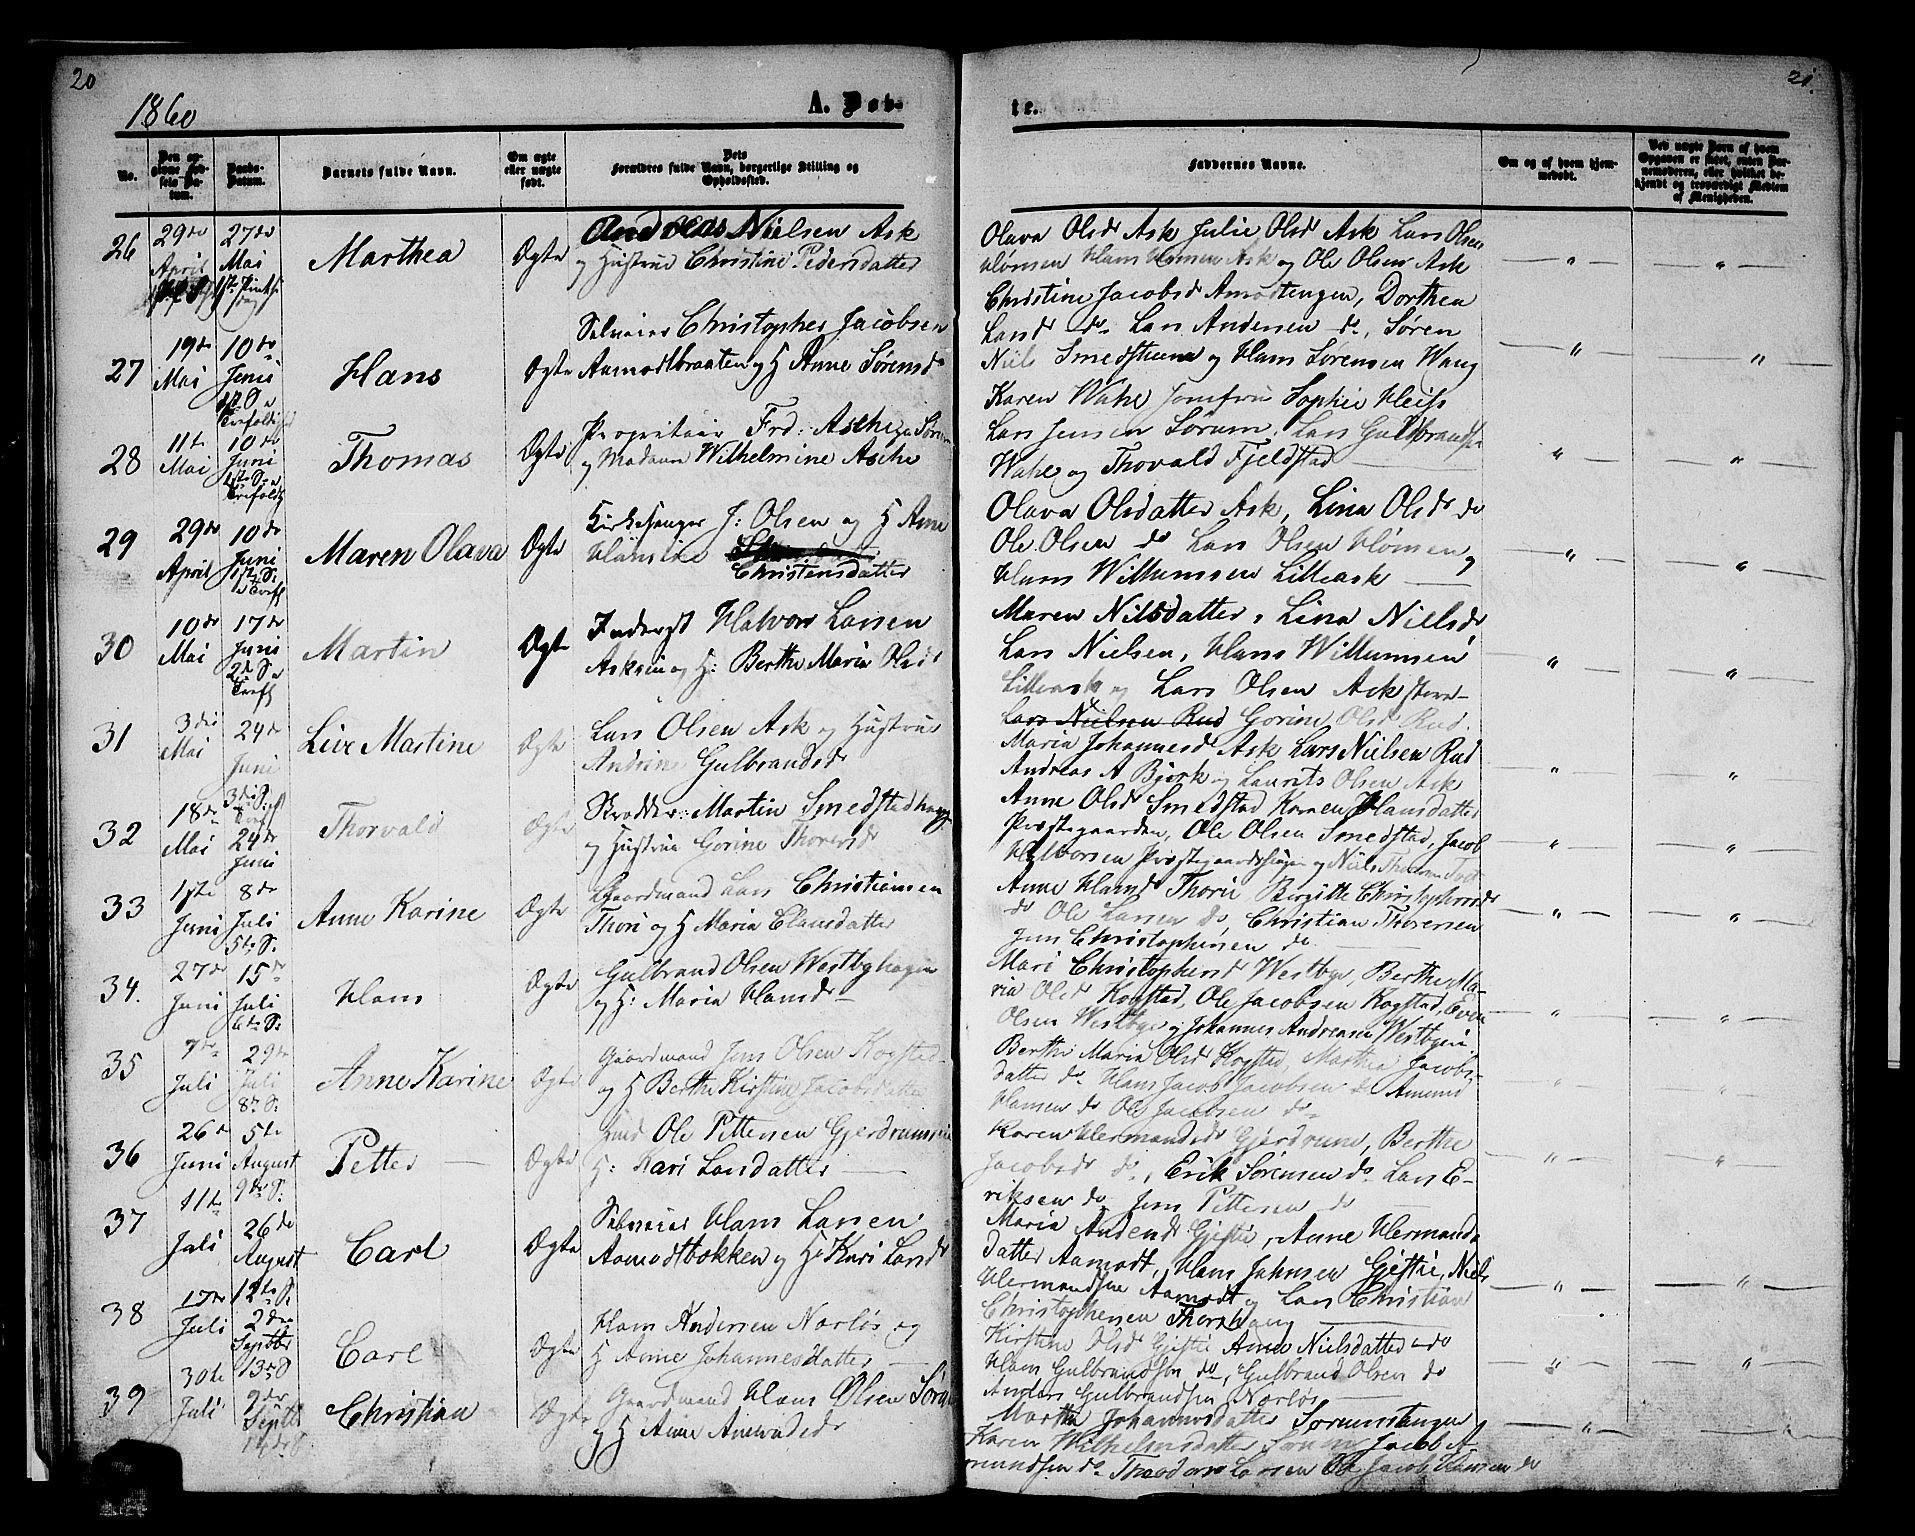 20
1860
A. Døb-
No.
Den opgivne Fødsels-Datum.
Daabs-Datum.
Barnets fulde Navn.
Om ægte eller uægte født.
Dets Forældres fulde Navn, borgerlige Stilling og Opholdssted.
26
29de April
27de Mai 1ste Pintsedag
Marthea
Ægte
Andreas Nielsen Ask
og Hustrue Christine Pedersdatter
27
19de Mai
10de Juni 1st S. a Trefoldigh
Hans
Ægte
Selveier Christopher Jacobsen
Aamodtbraaten og H Anne Sørensdr
28
11te Mai
10de Juni 1ste S. a Trefoldh
Thomas
Ægte
Propritair Frd: Asche
og Madam Wilhelmine Asche
29
29de April
10de Juni 1ste S. Trefh
Maren Olava
Ægte
Kirkesanger J: Olsen og H Anne
Christensdatter
30
10de Mai
17de Juni 2d S. a Trefh
Martin
Ægte
Inderst Halvor Larsen
Askeie og H: Berthe Maria Olsdr
31
3die Mai
24de Juni 3die S. Trefh
Live Martine
Ægte
Lars Olsen Ask og Hustrue
Andrine Gulbrandsdr
32
18de Mai
24de Juni
Thorvald
Ægte
Skrædder: Martin Smedstadhagen
og Hustrue Gorine Thoresdr
33
17de Juni
8de Juli 5te S.
Anne Karine
Ægte
Gaardmand Lars Christiansen
Thori og H Maria Clausdatter
34.
27de Juni
15de Juli 6te S:
Hans
Ægte
Gulbrand Olsen Westbyhagen
og H: Maria Hansdr
35
7de Juli
29de Juli 8de S:
Anne Karine
Ægte
Gaardmand Jens Olsen Kogstad
og H Berthe Kirstine Jacobsdatter
36
26d Juni
5te August 9de S:
Petter
Ægte
Ole Pettersen Gjerdrumseie
H: Kari Larsdatter
37
11te Juli
26de August 12te S.
Carl
Ægte
Selveier Hans Larsen
Aamodtbakken og H: Kari Larsdr
38
17de Juli
2den Septbr 13de S
Carl
Ægte
Hans Andersen Norløs og
H Anne Johannesdatter
39
30te Juli
9de Septbr 14de S.
Christian
Ægte
Gaardmand Hans Olsen Sørum
og H Anne Amundsdr
21.
te.
Faddernes Navne.
Om og af hvem hjemmedøbt.
Ved uægte Børn af hvem Opgaven er skeet, enten Barnemoderen, eller hvilket bekjendt og troværdigt Medlem af Menigheden.
Olava Olsdr Ask Julie Olsdr Ask Lars Olsen
Hømsen Hans Hømsen Ask og Ole Olsen Ask
Christine Jacobsdr Amodtengen, Dorthea
Larsdr do Lars Andersen do, Søren
Niels Smedstuen og Hans Sørensen Wang
Karen Wahl Jomfru Sophie Heiss
Lars Jensen Sørum, Lars Guldbrands.
Wahl og Thorvald Fjeldstad
Olava Olsdatter Ask, Lina Olsdr do
Ole Olsen do Lars Olsen Hømsen og
Hans Willumsen Lilleask
Maren Nilsdatter, Lina Nielsdr
Lars Nielsen, Hans Willumsen
Lilleask og Lars Olsen Ask
Lars Nielsen Rud Gorine Olsdr Rud
Maria Johannesdr Ask Lars Nielsen Rud
Andreas A Bjørk og Laurits Olsen Ask
Anne Olsdr Smedstad Karen Hansdatter
Præstegaarden, Ole Olsen Smedstad, Jacob
Halvorsen Præstegaardshagen og Niels
Anne Hansdr Thori Birgitte Christophersdr
do Ole Larsen do Christian Thorersen
Jens Christophersen do
Mari Christophersdr Westbye, Berthe Ma-
ria Olsdr Kogstad, Ole Jacobsen Kogstad, Even
Olsen Westbye og Johannes Andreasen Westbyeie
Berthe Maria Olsdr Kogstad, Marthea Jacobs-
datter do Hans Jacob Jacobsen do Amund
Hansen do Ole Jacobsen do
Karen Hermandsdr Gjerdrum, Berthe
Jacobsdr do, Erik Sørensen do Lars E-
riksen do Jens Pettersen do
Maria Andersdr Gjestie, Anne Hermands
datter Aamodt, Hans Jahnsen Gjestie, Niels
Hermandsen Aamodt og Lars Christian
Christophersen
Kirstine Olsdr Gjestie Anne Nielsdatter do
Hans Gulbrandsen do, Gulbrand Olsen do
Anders Gulbrandsen Norløs
Marthe Johannesdatter Sørumsengen
Karen Wilhelmsdatter Sørum Jacob A-
mundsen do Theodor Larsen Ole Jacob Hansen do